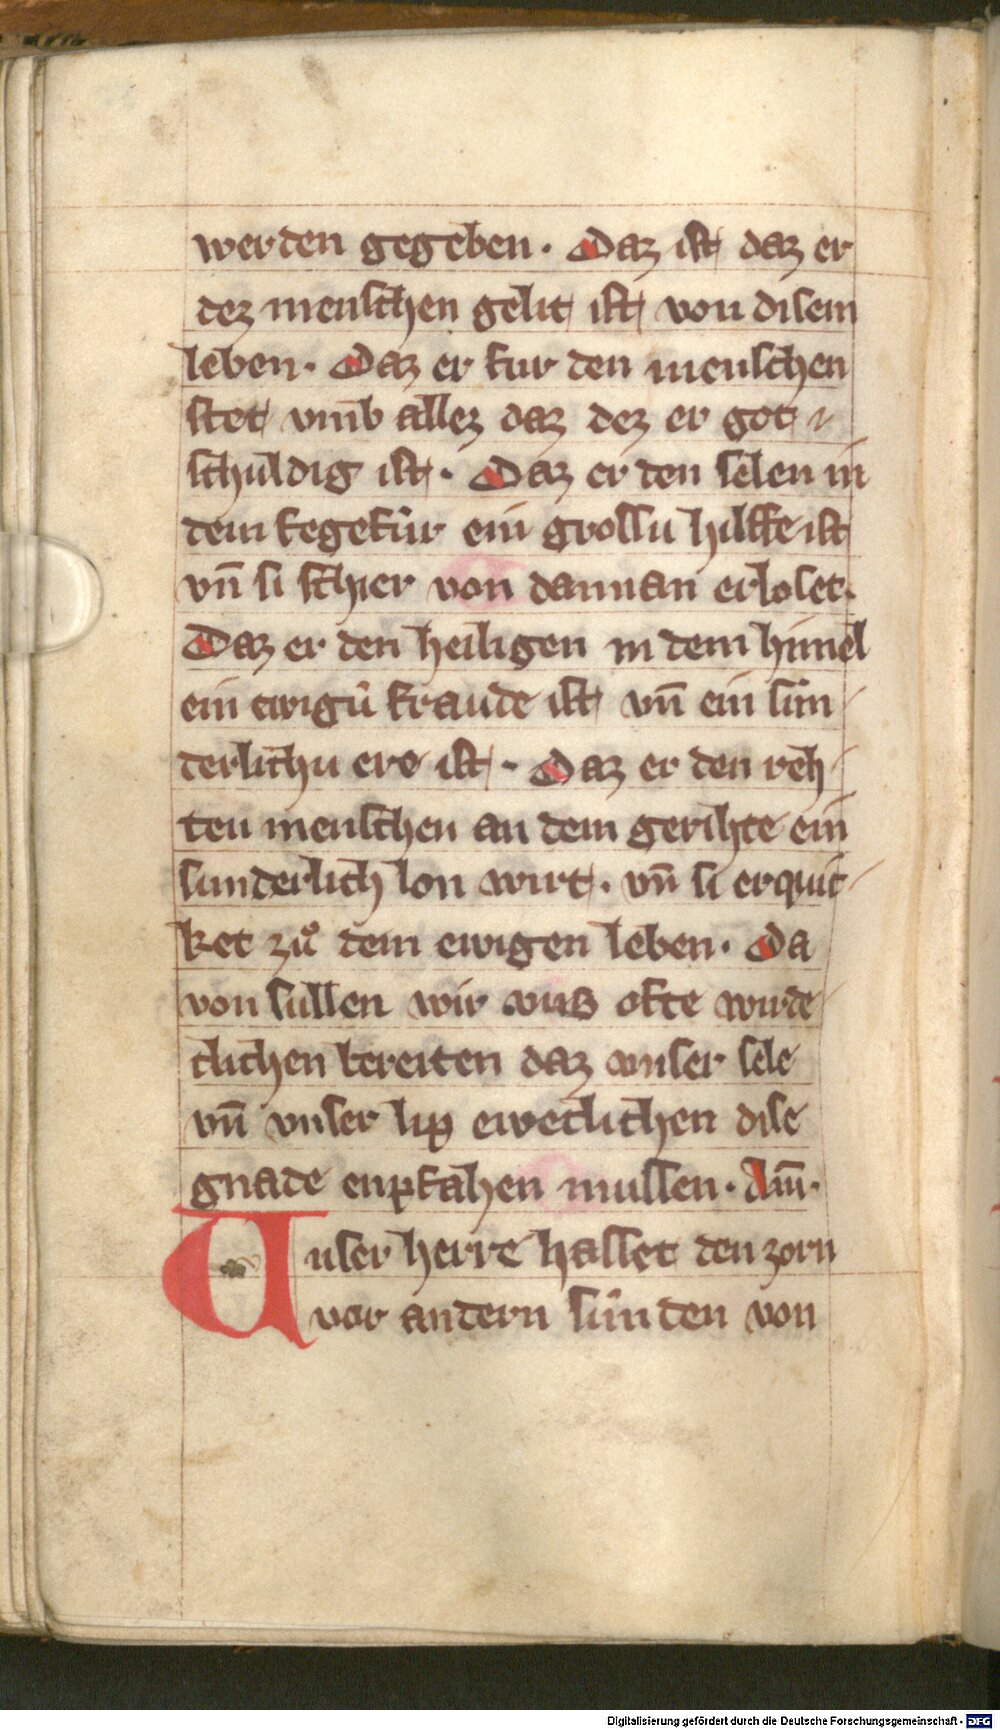 werden gegeben. Daz ist daz er
dez menschen gelit ist von disem
leben. Daz er fur den menschen
stet vmb allez daz dez er got
schuldig ist. Daz er den selen in
dem fegefúr ein grossu hilffe ist
vn̄ si schier von dannan erloset.
Daz er den heiligen in dem himel
ein ewigú fraude ist vn̄ ein sún
derlichu ere ist. Daz er den reh
ten menschen an dem gerihte ein
sunderlich lon wirt. vn̄ si erquic
ket zuͦ dem ewigen leben. Da
von sullen wir vns ofte wirde
clichen bereiten daz vnser sele
vn̄ vnser lip eweclichen dise
gnade enpfahen mussen. Am̄.
Unser herre hasset den zorn
vor andern súnden von
Digitalisierung gefördert durch die Deutsche Forschungsgemeinschaft - DFG